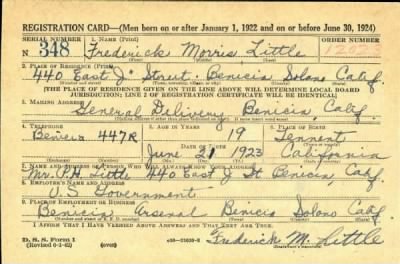 REGISTRATION CARD—(Men born on or after January 1, 1922 and on or before June 30, 1924)
SERIAL NUMBER 1. NAME (Print) ORDER NUMBER
N 348 Frederick Morris Little
(First) (Middle) (Last)
2. PLACE OF RESIDENCE (Print)
440 East "J" Street. Benicia Solano Calif.
[THE PLACE OF RESIDENCE GIVEN ON THE LINE ABOVE WILL DETERMINE LOCAL BOARD
JURISDICTION; LINE 2 OF REGISTRATION CERTIFICATE WILL BE IDENTICAL]
3. MAILING ADDRESS
General Delivery Benicia, Calif.
4. TELEPHONE 5. AGE IN YEARS 6. PLACE OF BIRTH
19 Tennent
Benicia 447R DATE OF BIRTH
June 21 1923 California
7. NAME AND ADDRESS OF PERSON WHO WILL ALWAYS KNOW YOUR ADDRESS
Mr. P.H. Little 440 East J St Benicia, Calif.
8. EMPLOYER'S NAME AND ADDRESS
U.S. Government
9. PLACE OF EMPLOYMENT OR BUSINESS
Benicia Arsenal Benicia Solano Calif
I AFFIRM THAT I HAVE VERIFIED ABOVE ANSWERS AND THAT THEY ARE TRUE.
D. S. S. Form 1
(Revised 6-5-42) (over) Frederick M. Little